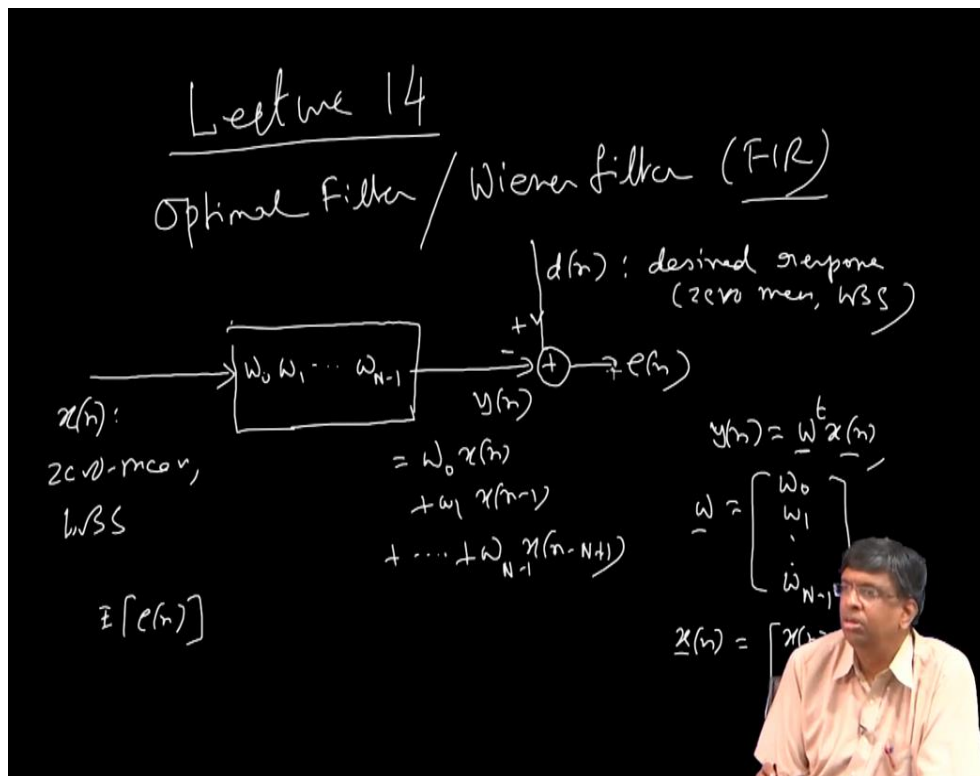 Lecture 14
Optimal Filter / Wiener filter (FIR)
d(n) : desired response
(zero mean, WSS)
+
-
+
e(n)
ω₀ ω₁ ⋯ ω_{N-1}
x(n) :
zero-mean,
WSS
y(n)
= ω₀ x(n)
+ ω₁ x(n-1)
+ ⋯ + ω_{N-1} x(n-N+1)
y(n) = ω^t x(n)
ω = [ω₀
ω₁
.
.
ω_{N-1}
x(n) = [x(n
E[e(n)]